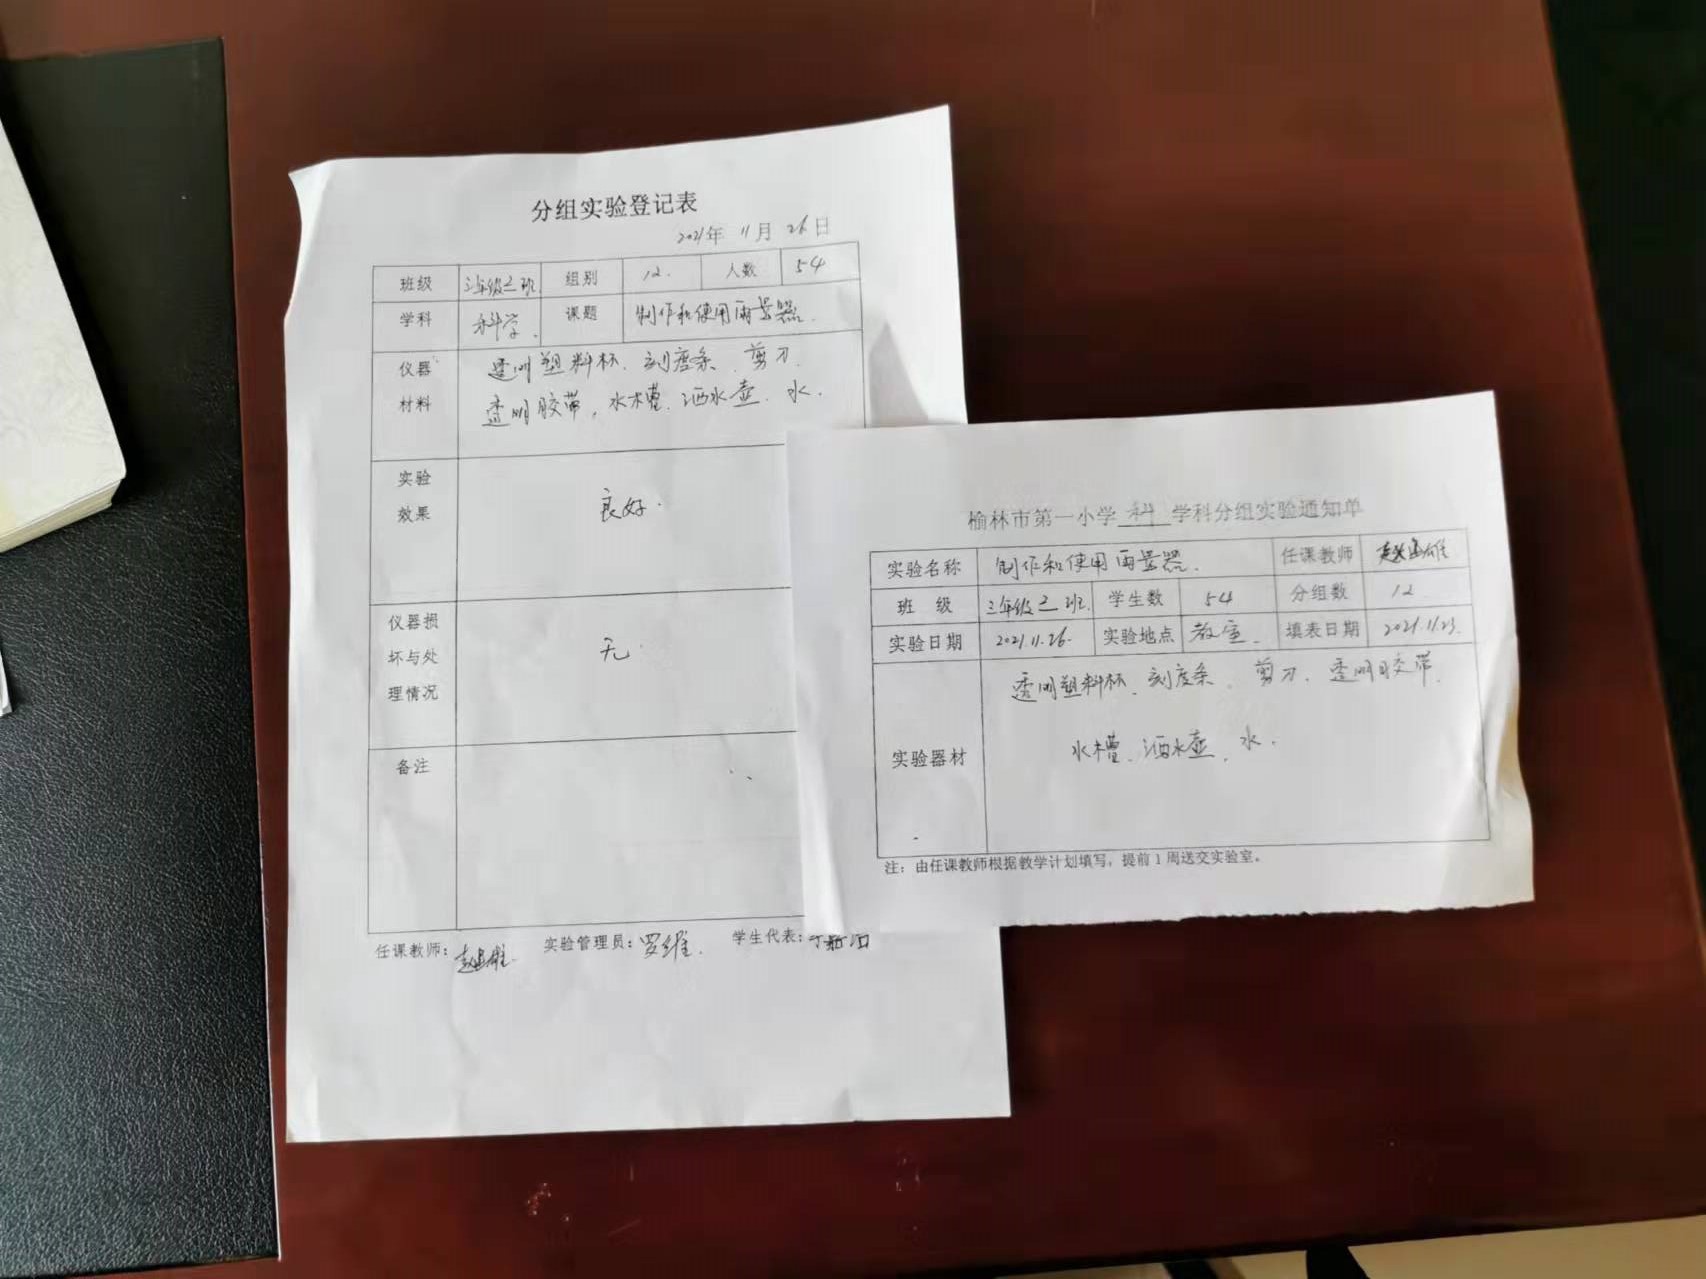 分组实验登记表
2021年 11月 26日
班级 三年级二班 组别 12. 人数 54
学科 科学. 课题 制作和使用雨量器.
仪器材料 透明塑料杯、刻度条、剪刀、
透明胶带、水槽、洒水壶、水.
实验效果 良好.
仪器损坏与处理情况 无.
备注
任课教师: 实验管理员:罗维. 学生代表:
榆林市第一小学 科 学科分组实验通知单
实验名称 制作和使用雨量器. 任课教师
班 级 三年级二班. 学生数 54 分组数 12
实验日期 2021.11.26. 实验地点 教室. 填表日期 2021.11.23.
实验器材 透明塑料杯、刻度条、剪刀、透明胶带、
水槽、洒水壶、水.
注：由任课教师根据教学计划填写，提前1周送交实验室。